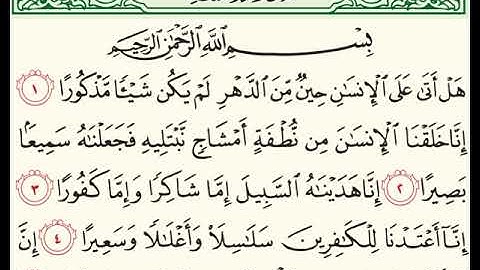 بِسْمِ اللَّهِ الرَّحْمَٰنِ الرَّحِيمِ
هَلْ أَتَىٰ عَلَى الْإِنسَانِ حِينٌ مِّنَ الدَّهْرِ لَمْ يَكُن شَيْئًا مَّذْكُورًا ١
إِنَّا خَلَقْنَا الْإِنسَانَ مِن نُّطْفَةٍ أَمْشَاجٍ نَّبْتَلِيهِ فَجَعَلْنَاهُ سَمِيعًا
بَصِيرًا ٢ إِنَّا هَدَيْنَاهُ السَّبِيلَ إِمَّا شَاكِرًا وَإِمَّا كَفُورًا ٣
إِنَّا أَعْتَدْنَا لِلْكَافِرِينَ سَلَاسِلَا وَأَغْلَالًا وَسَعِيرًا ٤ إِنَّ